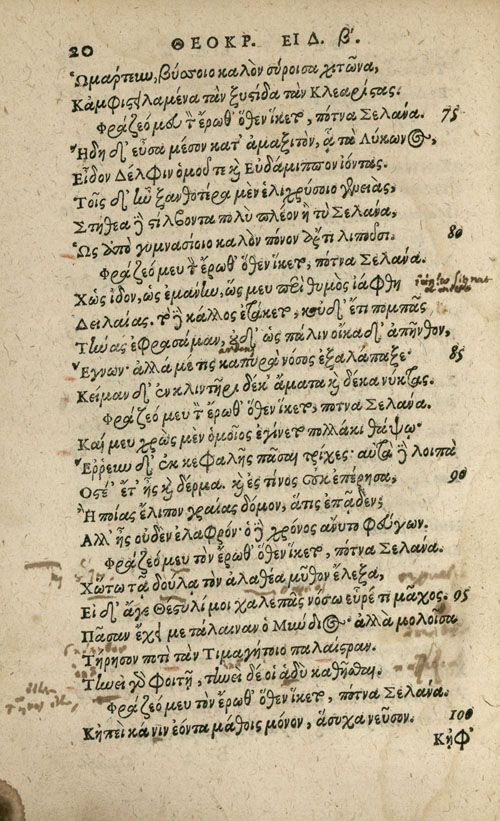 20 ΘΕΟΚΡ. ΕΙΔ. β'.
Ὡμάρτευν, βύσσοιο καλὸν σύροισα χιτῶνα,
Κἀμφιστειλαμένα τὰν ξυστίδα τὰν Κλεαρίστας.
Φράζεό μου τὸν ἔρωθ' ὅθεν ἵκετο, πότνα Σελάνα. 75
Ἤδη δ' εὖσα μέσον κατ' ἀμαξιτὸν, ᾇ τὰ Λύκωνος,
Εἶδον Δέλφιν ὁμοῦ τε καὶ Εὐδάμιππον ἰόντας.
Τοῖς δ' ἦν ξανθοτέρα μὲν ἑλιχρύσοιο γενειὰς,
Στήθεα δὲ στίλβοντα πολὺ πλέον ἢ τὺ Σελάνα,
Ὡς ἀπὸ γυμνασίοιο καλὸν πόνον ἄρτι λιποῦσι. 80
Φράζεό μευ τὸν ἔρωθ' ὅθεν ἵκετο, πότνα Σελάνα.
Χὡς ἴδον, ὡς ἐμάνην, ὥς μευ περὶ θυμὸς ἰάφθη
Δειλαίας. τὸ δὲ κάλλος ἐτάκετο, κοὐδ' ἔτι πομπᾶς
Τήνας ἐφρασάμαν, οὐδ' ὡς πάλιν οἴκαδ' ἀπῆνθον,
Ἔγνων· ἀλλά μέ τις καπυρὰ νόσος ἐξαλάπαξε· 85
Κείμαν δ' ἐν κλιντῆρι δέκ' ἄματα καὶ δέκα νύκτας.
Φράζεό μευ τὸν ἔρωθ' ὅθεν ἵκετο, πότνα Σελάνα.
Καί μευ χρὼς μὲν ὁμοῖος ἐγίνετο πολλάκι θάψῳ·
Ἔρρευν δ' ἐκ κεφαλῆς πᾶσαι τρίχες· αὐτὰ δὲ λοιπὰ
Ὀστέ' ἔτ' ἦς καὶ δέρμα. καὶ ἐς τίνος οὐκ ἐπέρησα, 90
Ἢ ποίας ἔλιπον γραίας δόμον, ἅτις ἐπᾷδεν;
Ἀλλ' ἦς οὐδὲν ἐλαφρόν· ὁ δὲ χρόνος ἄνυτο φεύγων.
Φράζεό μευ τὸν ἔρωθ' ὅθεν ἵκετο, πότνα Σελάνα.
Χοὕτω τᾷ δούλᾳ τὸν ἀλαθέα μῦθον ἔλεξα,
Εἰ δ' ἄγε Θεστυλί μοι χαλεπᾶς νόσω εὗρέ τι μᾶχος. 95
Πᾶσαν ἔχει με τάλαιναν ὁ Μύνδιος· ἀλλὰ μολοῖσα
Τήρησον ποτὶ τὰν Τιμαγήτοιο παλαίστραν.
Τηνεὶ γὰρ φοιτῇ, τηνεὶ δέ οἱ ἁδὺ καθῆσθαι.
Φράζεό μευ τὸν ἔρωθ' ὅθεν ἵκετο, πότνα Σελάνα.
Κἠπεί κά νιν ἐόντα μάθοις μόνον, ἄσυχα νεῦσον. 100
Κἠφ'